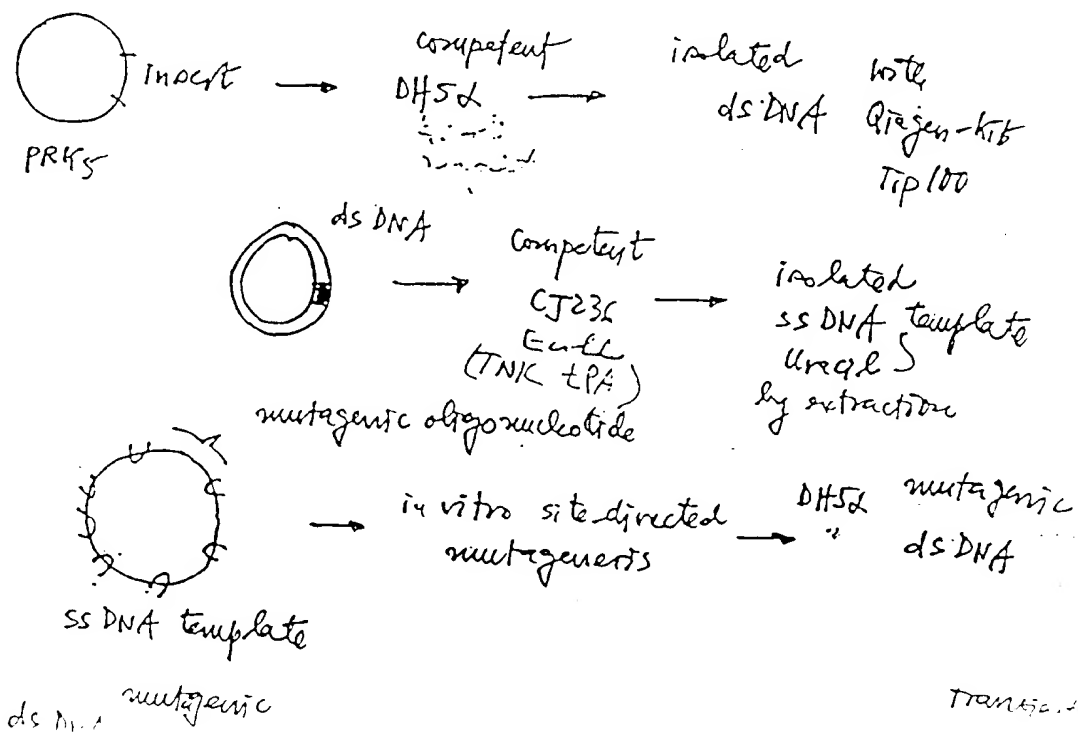 Insert
PRK5
competent
DH5α
isolated
dsDNA
with
Qiagen-Kit
Tip100
ds DNA
competent
CJ236
(TNK tPA)
isolated
ssDNA template
Uracil
by extraction
mutagenic oligonucleotide
in vitro site-directed
mutagenesis
DH5α
mutagenic
dsDNA
ss DNA template
mutagenic